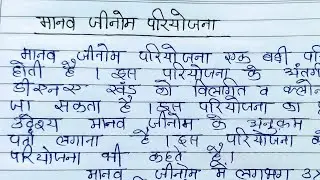 मानव जीनोम परियोजना
मानव जीनोम परियोजना एक बड़ी
होती है । इस परियोजना के अंतर्ग
डीएनए खंड को विलगित व क्लोन
जा सकता है । इस परियोजना का
उद्देश्य मानव जीनोम के अनुक्रम
पता लगाना है । इस परियोजना को
परियोजना भी कहते है ।
मानव जीनोम में लगभग 3x